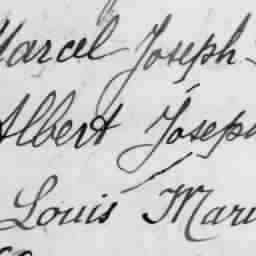 Marcel Joseph
Albert Joseph
Louis Mari